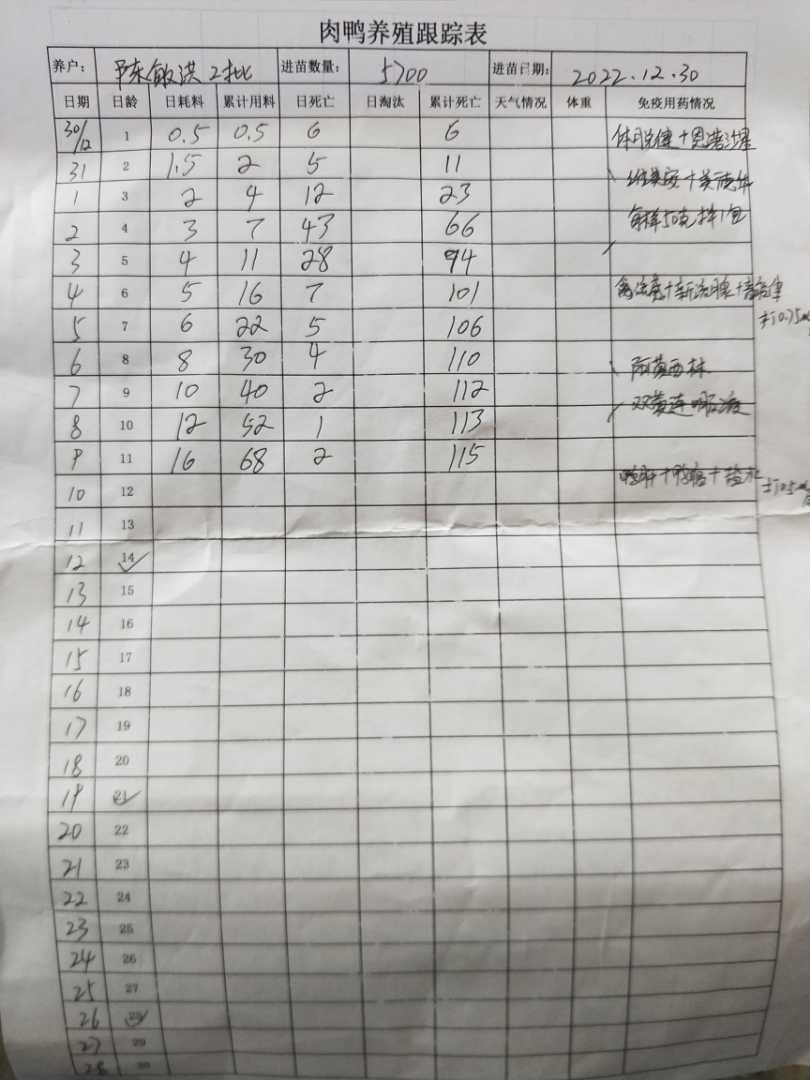 肉鸭养殖跟踪表
养户： 陈敏洪 2批 进苗数量： 5700 进苗日期： 2022.12.30
日期 日龄 日耗料 累计用料 日死亡 日淘汰 累计死亡 天气情况 体重 免疫用药情况
30/12 1 0.5 0.5 6 6
31 2 1.5 2 5 11
1 3 2 4 12 23
2 4 3 7 43 66 每样50克拌1包
3 5 4 11 28 94
4 6 5 16 7 101
5 7 6 22 5 106
6 8 8 30 4 110 阿莫西林
7 9 10 40 2 112 双黄连口服液
8 10 12 52 1 113
9 11 16 68 2 115
10 12
11 13
12 14
13 15
14 16
15 17
16 18
17 19
18 20
19 21
20 22
21 23
22 24
23 25
24 26
25 27
26 28
27 29
28 30